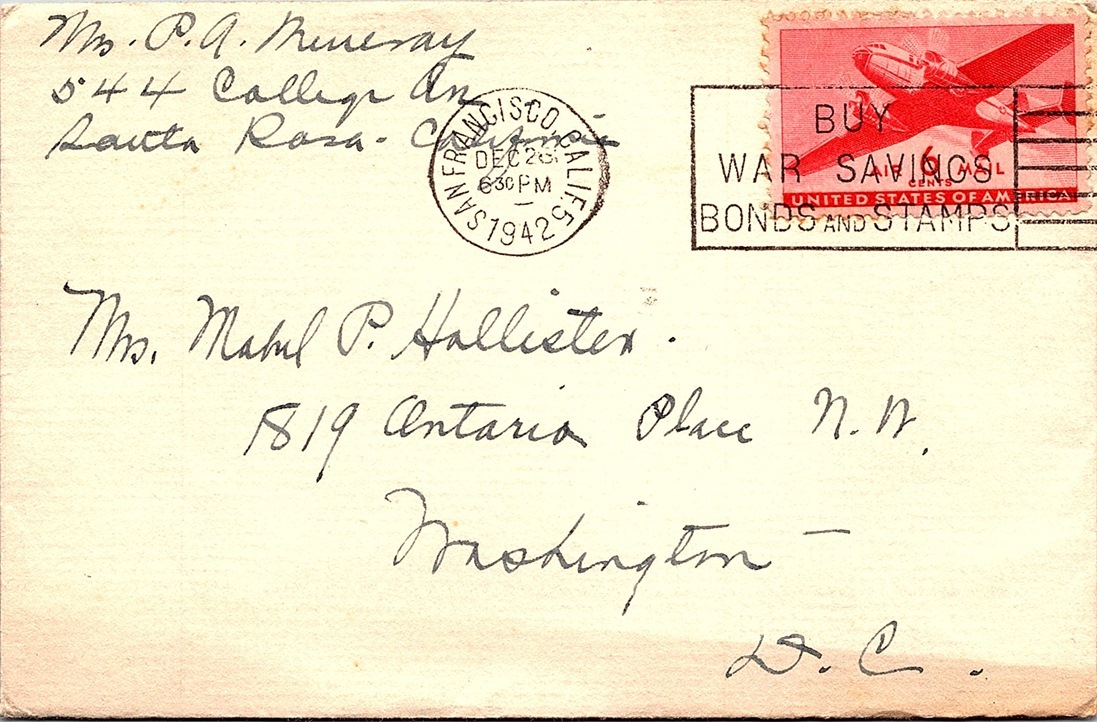 Mrs. P. A. Murray
544 College Av
Santa Rosa - California
SAN FRANCISCO, CALIF. 5
DEC 26
630 PM
1942
BUY
WAR SAVINGS
BONDS AND STAMPS
AIR 6 MAIL
CENTS
UNITED STATES OF AMERICA
Mrs. Mabel P. Hollister.
1819 Ontario Place N.W.
Washington —
D.C.